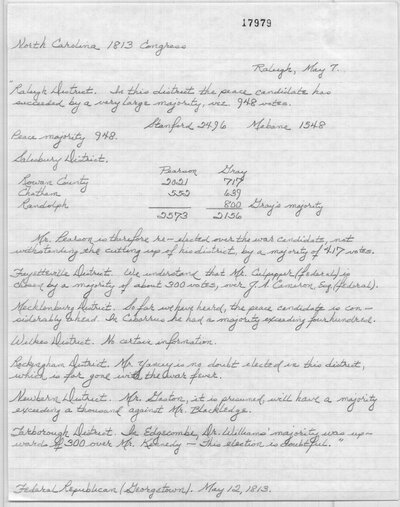 17979
North Carolina 1813 Congress
Raleigh, May 7.
"Raleigh District. In this district the peace candidate has
succeeded by a very large majority, viz 948 votes.
Stanford 2496 Mebane 1548
Peace majority 948.
Salisbury District.
Pearson Gray
Rowan County 2021 717
Chatham 552 639
Randolph 800 Gray's majority
2573 2156
Mr. Pearson is therefore re-elected over the war candidate, not
withstanding the cutting up of his district, by a majority of 417 votes.
Fayetteville District. We understand that Mr. Culpepper (federal) is
chosen by a majority of about 300 votes, over J. A. Cameron Esq. (federal).
Mecklenburg District. So far we have heard, the peace candidate is con-
siderably ahead. In Cabarrus he had a majority exceeding four hundred.
Wilkes District. No certain information.
Rockingham District. Mr. Yancey is no doubt elected in this district,
which is far gone with the war fever.
Newbern District. Mr. Gaston, it is presumed will have a majority
exceeding a thousand against Mr. Blackledge.
Tarborough District. In Edgecombe, Dr. Williams' majority was up-
wards of 300 over Mr. Kennedy - This election is doubtful."
Federal Republican (Georgetown). May 12, 1813.